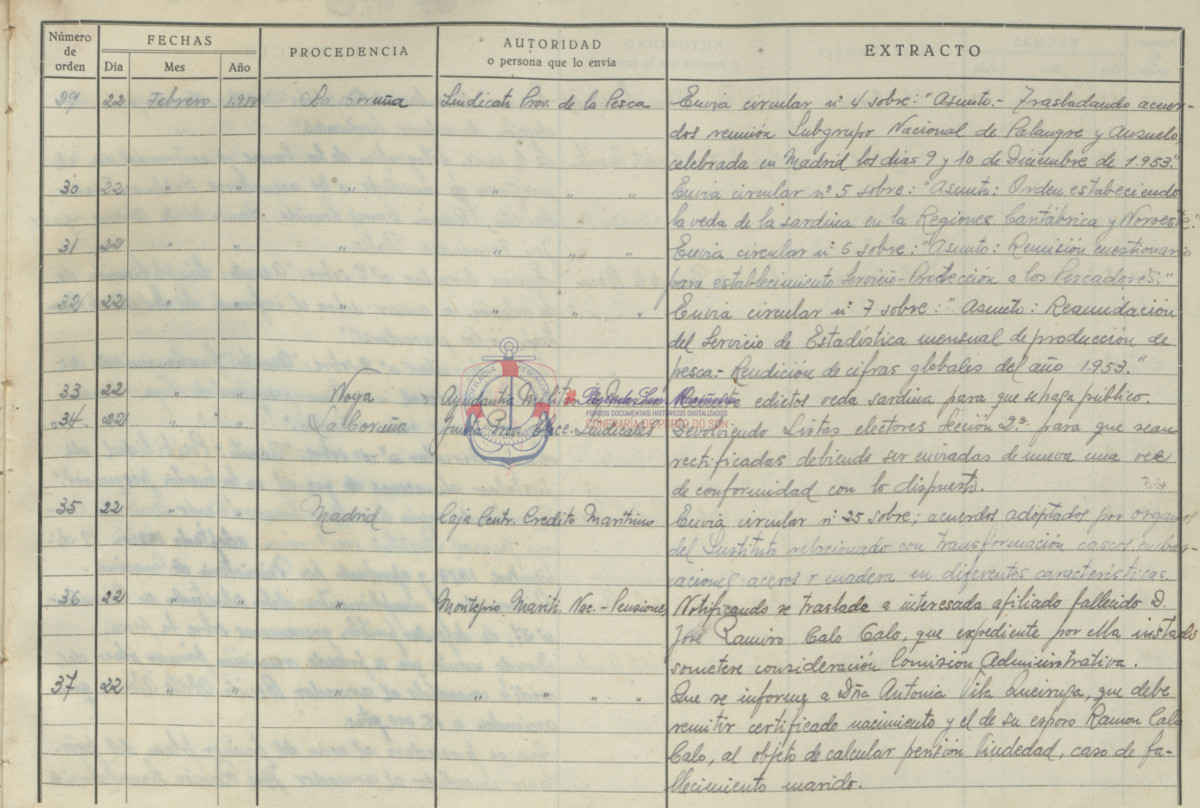 Número de orden FECHAS PROCEDENCIA AUTORIDAD o persona que lo envía EXTRACTO
Día Mes Año
29 22 Febrero 1.954 La Coruña Sindicato Prov. de la Pesca Envia circular nº 4 sobre: "Asunto.- Trasladando acuer-
dos reunión Subgrupo Nacional de Palangre y Anzuelo,
celebrada en Madrid los dias 9 y 10 de Diciembre de 1.953."
30 22 " " " " " " Envia circular nº 5 sobre: "Asunto: Orden estableciendo
la veda de la sardina en la Regiones Cantábrica y Noroeste."
31 22 " " " " " " Envia circular nº 6 sobre: "Asunto: Remisión cuestionario
para establecimiento Servicio-Protección a los Pescadores."
32 22 " " " " " " Envia circular nº 7 sobre: "Asunto: Reanudación
del Servicio de Estadística mensual de producción de
pesca.- Rendición de cifras globales del año 1953."
33 22 " " Noya Ayudantia Militar de edictos veda sardina para que sepa público.
34 22 " " La Coruña Junta Prov. Elecc. Sindicales Devolviendo Listas electores Sección 2ª para que sean
rectificadas debiendo ser enviadas de nueva una vez
de conformidad con lo dispuesto.
35 22 " " Madrid Caja Centr. Credito Maritimo Envia circular nº 25 sobre; acuerdos adoptados por organos
del Instituto relacionado con transformación cascos embar-
caciones aceros o madera en diferentes características.
36 22 " " " Montepio Marit. Nac. - Pensiones Notificando se traslade a interesada afiliado fallecido D.
José Ramiro Calo Calo, que expediente por ella instado
somete consideración Comisión Administrativa.
37 22 " " " " " " " Que se informe a Dña Antonia Vila Queiruga, que debe
remitir certificado nacimiento y el de su esposo Ramon Calo
Calo, al objeto de calcular pensión Viudedad, caso de fa-
llecimiento marido.
FONDOS DOCUMENTAIS HISTÓRICOS DIXITALIZADOS
CONFRARÍA DE PORTO DO SON